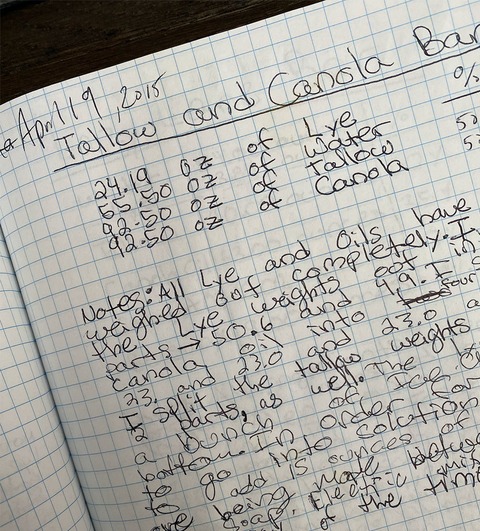 April 19, 2015
Tallow and Canola Bar
%
24.19 oz of Lye
55.50 oz of Water
92.50 oz of Tallow
92.50 oz of Canola
Notes: All Lye and Oils have
weighed oof completely. I
the Lye weights oof in
parts → 50.6 and 19. I s
Canola oil into four
23. and 23.0 and 23.0 a
I split the tallow weights
2 parts, as well. The b
a bunch of Ice.
bottom. In order for
to go into solution
to add 15 ounces of
being made
soap. Electric mis
of the time